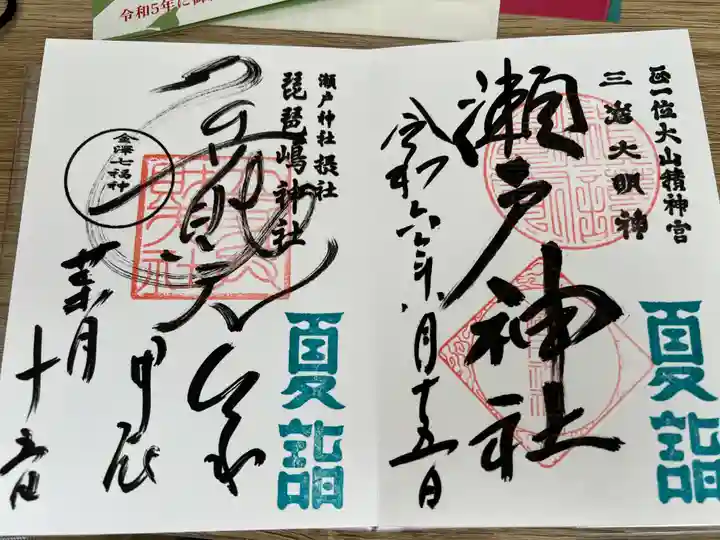 令和5年に御
正一位大山積神宮
三嶋大明神
瀬戸神社
令和六年八月十五日
夏詣
瀬戸神社摂社
琵琶嶋神社
金澤七福神
甲辰
葉月
十五日
夏詣